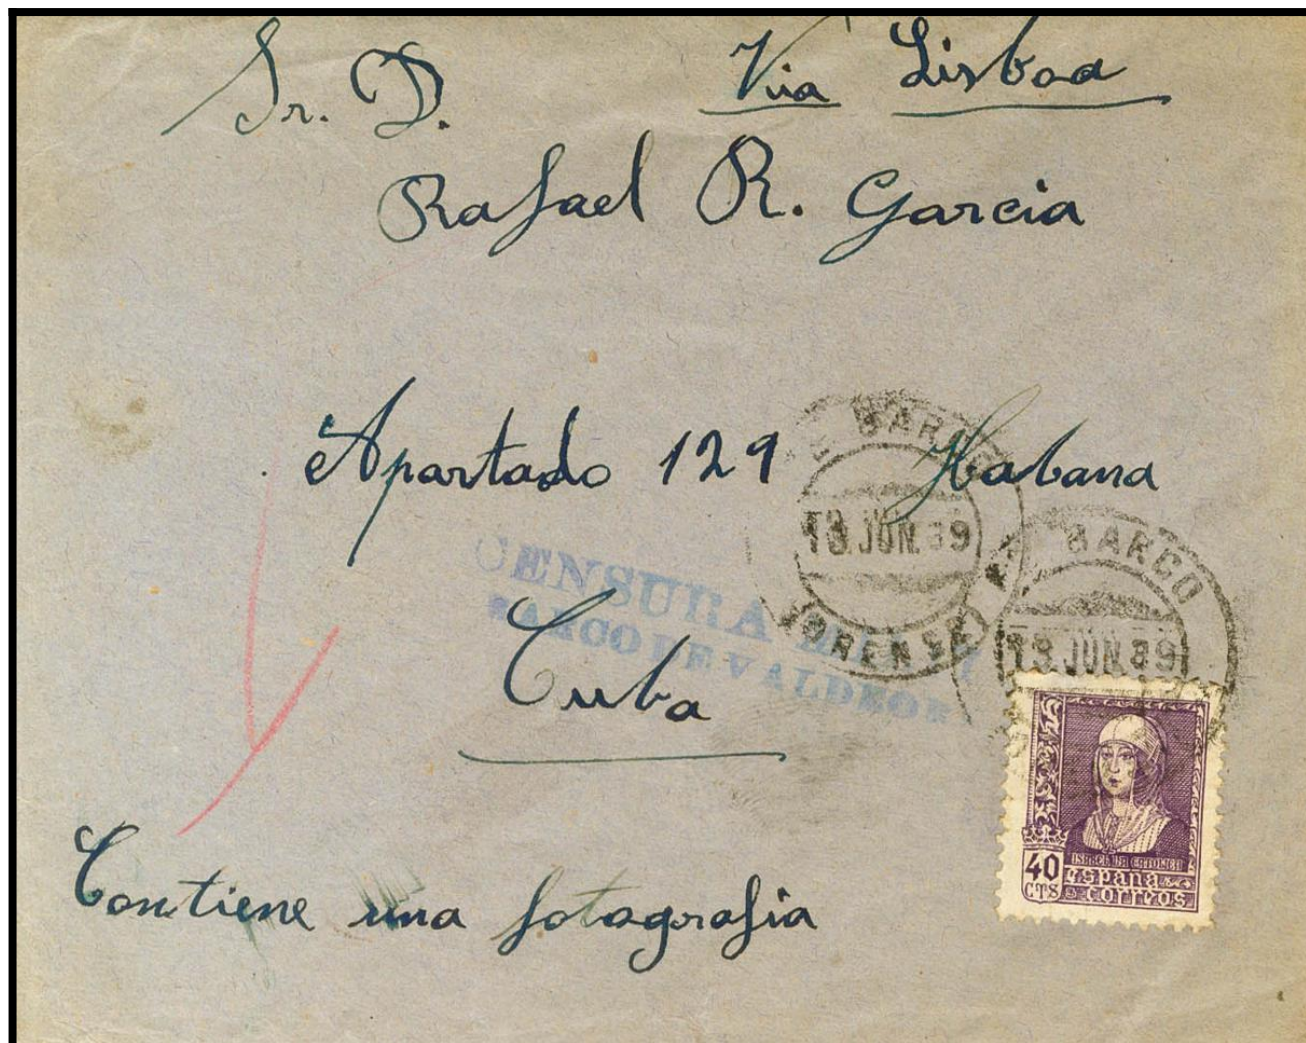 Via Lisboa
Sr. D.
Rafael R. Garcia
Apartado 129 Habana
Cuba
Contiene una fotografia
BARCO
13.JUN.39
ORENSE
BARCO
13.JUN.39
CENSURA
BARCO DE VALDEOR
40
CTS
ISABEL LA CATOLICA
españa
correos